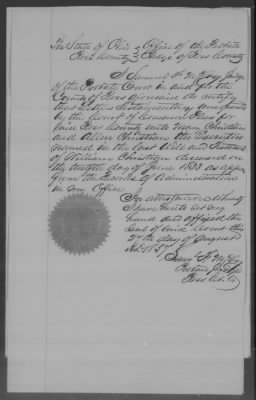 The State of Ohio } Office of the Probate
Ross County } Judge of Ross County
I Samuel F McCoy Judge
of the Probate Court in and for the
County of Ross aforesaid do certify
that Letters Testamentary were granted
by the Court of Common Pleas for
said Ross County unto
and Allen Christian the Executors
named in the last Will and Testament
of William Christian deceased on
the twelfth day of June 1833 as appears
from the Records of Administration
in my Office
In attestation whereof
I have hereunto set my
hand and affixed the
Seal of said Court this
27th day of August
AD. 1857
Saml F. McCoy
Probate Judge
Ross Co. O.